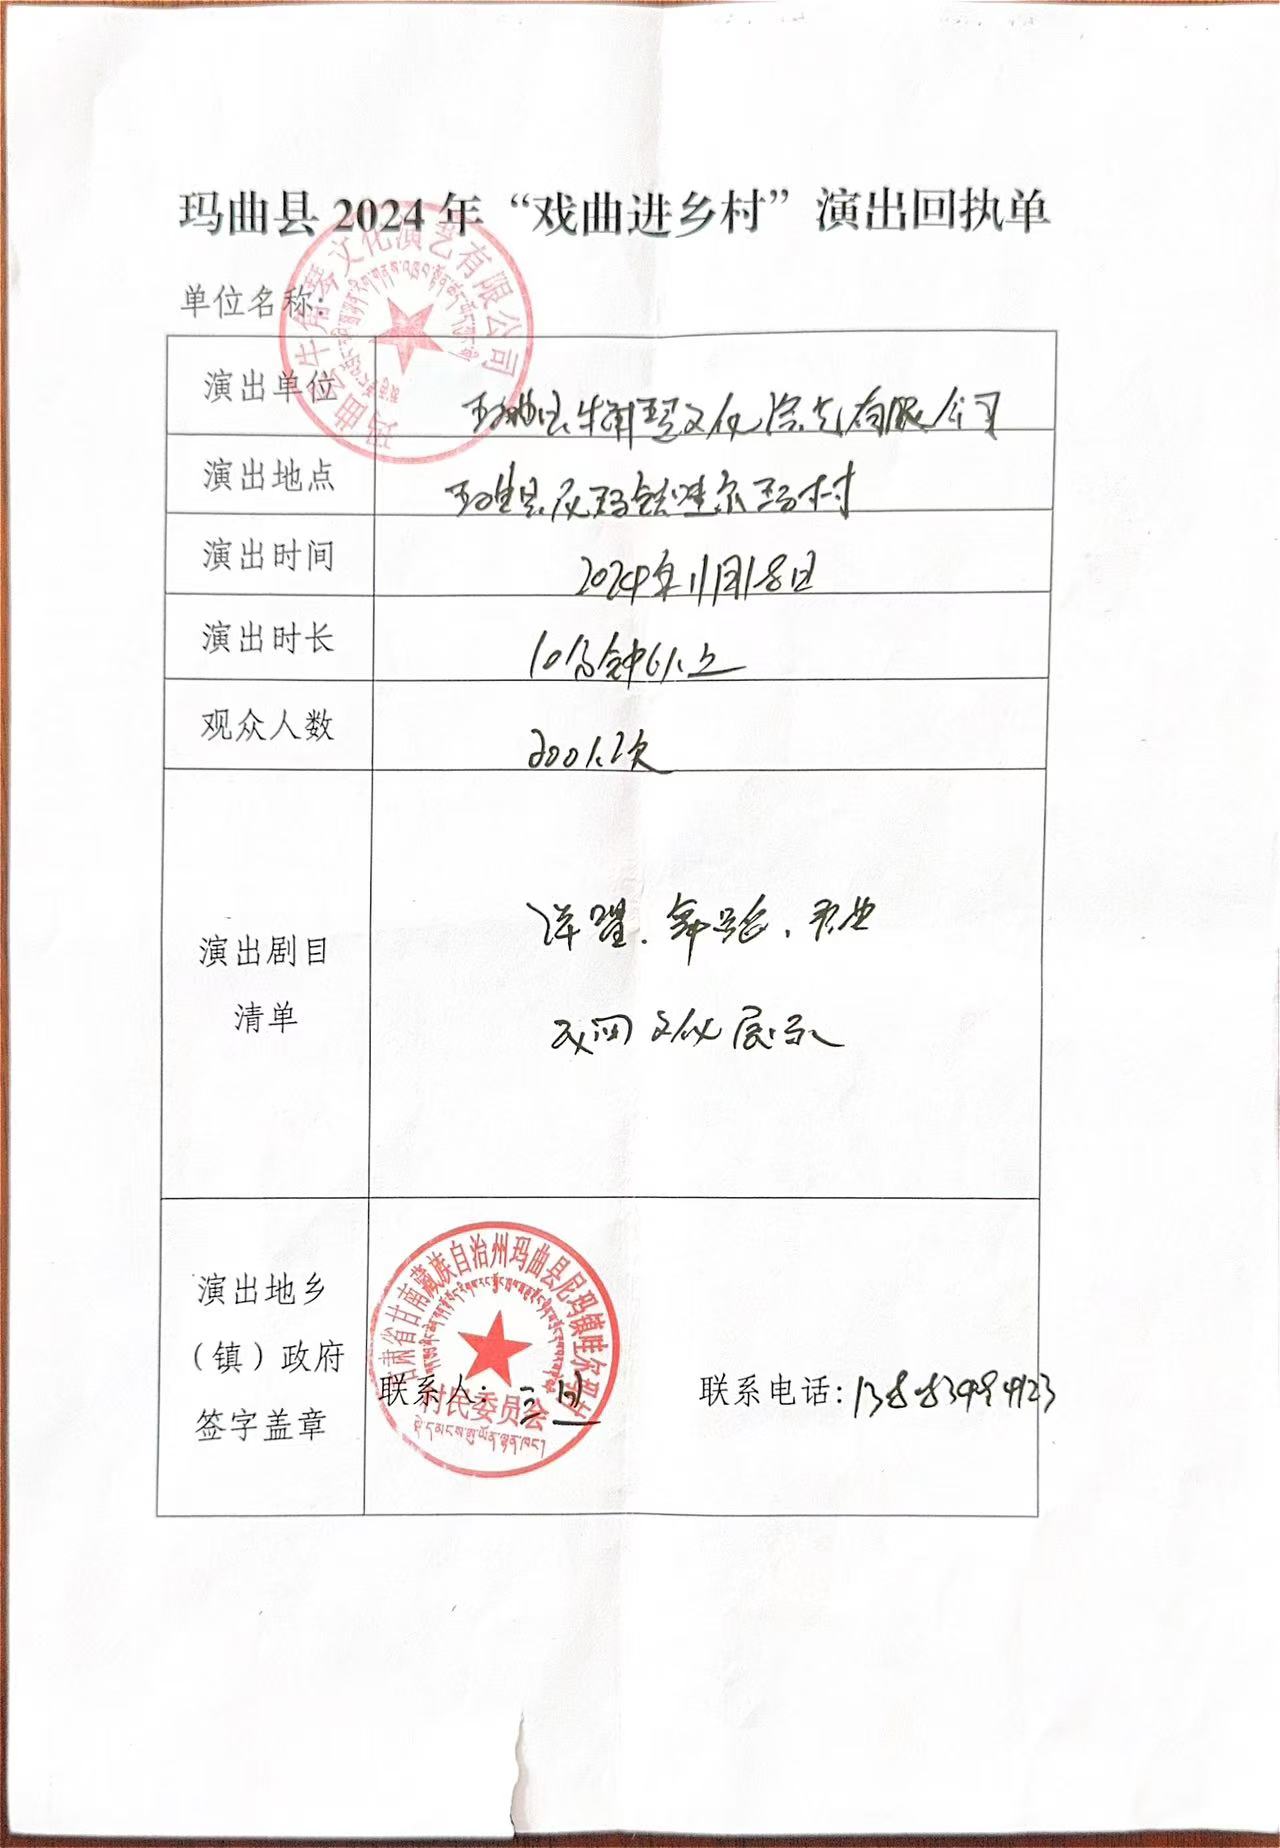 玛曲县 2024 年“戏曲进乡村”演出回执单
单位名称:
演出单位
玛曲县牛角琴文化演艺有限公司
演出地点
玛曲县尼玛镇哇尔玛村
演出时间
2024年11月18日
演出时长
10分钟以上
观众人数
200人次
演出剧目
清单
舞蹈、
民间文化展示
演出地乡
(镇)政府
签字盖章
联系人:
联系电话:
玛曲县牛角琴文化演艺有限公司
甘肃省甘南藏族自治州玛曲县尼玛镇哇尔玛村
村民委员会